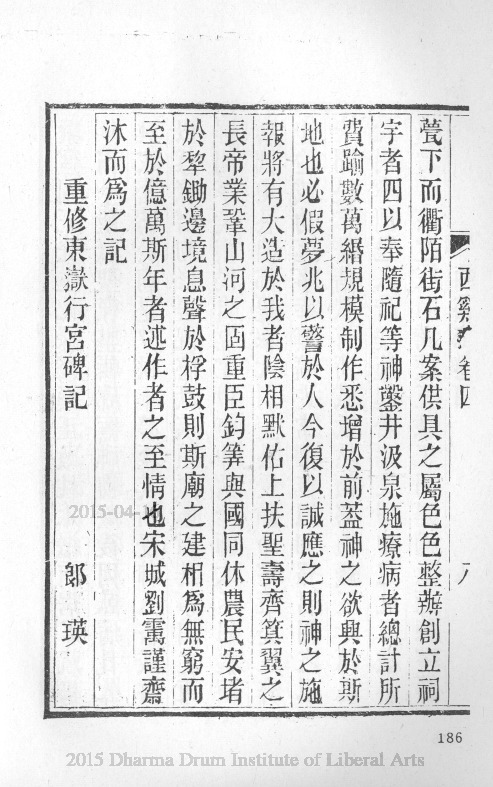 甃下而衢陌街石几案供具之屬色色整辦創立祠
宇者四以奉隨祀等神鑿井汲泉施療病者總計所
費踰數萬緡規模制作悉增於前蓋神之欲興於斯
地也必假夢兆以警於人今復以誠應之則神之施
報將有大造於我者陰相默佑上扶聖壽齊箕翼之
長帝業鞏山河之固重臣鈞筭與國同休農民安堵
於犂鋤邊境息聲於桴鼓則斯廟之建相爲無窮而
至於億萬斯年者述作者之至情也宋城劉霱謹齋
沐而爲之記
重修東嶽行宮碑記 郎瑛
西谿 卷四 八
186
2015-04-
2015 Dharma Drum Institute of Liberal Arts